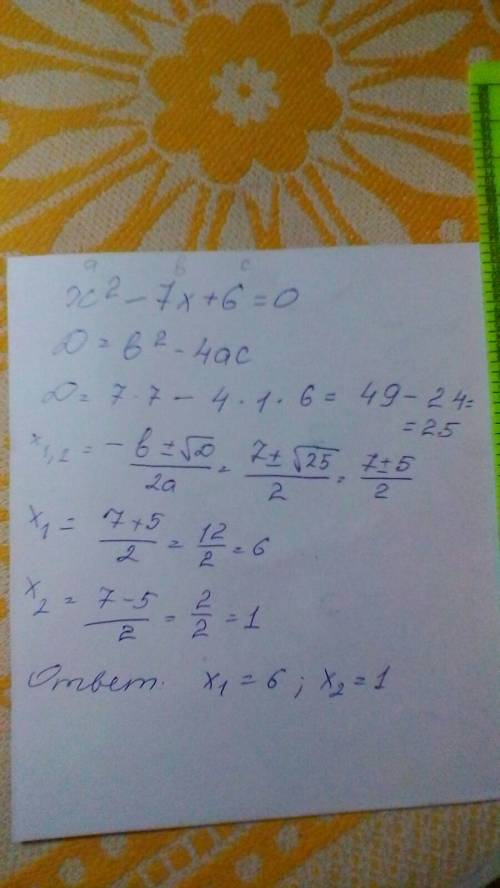 a в c
x² - 7x + 6 = 0
D = в² - 4ac
D = 7 · 7 - 4 · 1 · 6 = 49 - 24 =
= 25
x₁,₂ = (-в ± √D)/2a = (7 ± √25)/2 = (7 ± 5)/2
x₁ = (7 + 5)/2 = 12/2 = 6
x₂ = (7 - 5)/2 = 2/2 = 1
Ответ. x₁ = 6 ; x₂ = 1